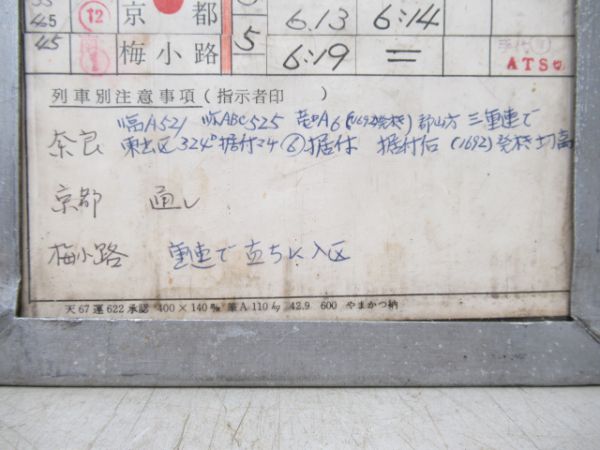 55
45 12 京都 6.13 6:14
45 1 梅小路 5 6:19 =
ATS切
列車別注意事項(指示者印 )
A521 ABC525 A6 (1692発機) 郡山方 三重連で
奈良 東出区 324D据付24 ⑥据付 据付后 (1692)発機切高
京都 通し
梅小路 重連で直ちに入区
天67運622承認 400×140㎜ 筆A 110㎏ 42.9 600 やまかつ納